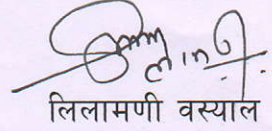 लिलामणी वस्याल